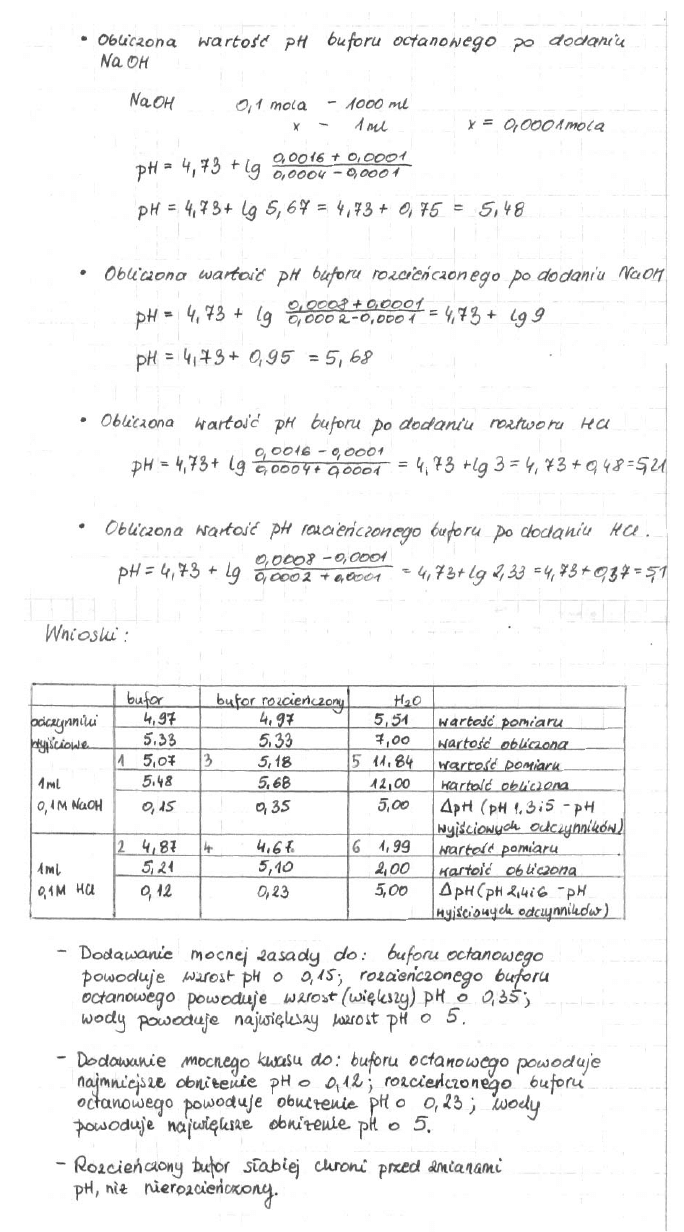 • Obliczona wartość pH buforu octanowego po dodaniu
NaOH
NaOH 0,1 mola – 1000 ml
x – 1ml x = 0,0001 mola
pH = 4,73 + lg (0,0016 + 0,0001)/(0,0004 – 0,0001)
pH = 4,73 + lg 5,67 = 4,73 + 0,75 = 5,48
• Obliczona wartość pH buforu rozcieńczonego po dodaniu NaOH
pH = 4,73 + lg (0,0008 + 0,0001)/(0,0002 – 0,0001) = 4,73 + lg 9
pH = 4,73 + 0,95 = 5,68
• Obliczona wartość pH buforu po dodaniu roztworu HCl
pH = 4,73 + lg (0,0016 – 0,0001)/(0,0004 + 0,0001) = 4,73 + lg 3 = 4,73 + 0,48 = 5,21
• Obliczona wartość pH rozcieńczonego buforu po dodaniu HCl.
pH = 4,73 + lg (0,0008 – 0,0001)/(0,0002 + 0,0001) = 4,73 + lg 2,33 = 4,73 + 0,37 = 5,1
Wnioski:
bufor bufor rozcieńczony H₂O
odczynniki 4,97 4,97 5,51 wartość pomiaru
wyjściowe 5.33 5,33 7,00 wartość obliczona
1 5,07 3 5,18 5 11,84 wartość pomiaru
1ml 5.48 5.68 12,00 wartość obliczona
0,1M NaOH 0,15 0,35 5,00 ΔpH (pH 1,3i5 – pH
wyjściowych odczynników)
2 4,87 4 4,67 6 1,99 wartość pomiaru
1ml 5,21 5,10 2,00 wartość obliczona
0,1M HCl 0,12 0,23 5,00 ΔpH (pH 2,4i6 – pH
wyjściowych odczynników)
– Dodawanie mocnej zasady do: buforu octanowego
powoduje wzrost pH o 0,15; rozcieńczonego buforu
octanowego powoduje wzrost (większy) pH o 0,35;
wody powoduje największy wzrost pH o 5.
– Dodawanie mocnego kwasu do: buforu octanowego powoduje
najmniejsze obniżenie pH o 0,12; rozcieńczonego buforu
octanowego powoduje obniżenie pH o 0,23; wody
powoduje największe obniżenie pH o 5.
– Rozcieńczony bufor słabiej chroni przed zmianami
pH, niż nierozcieńczony.